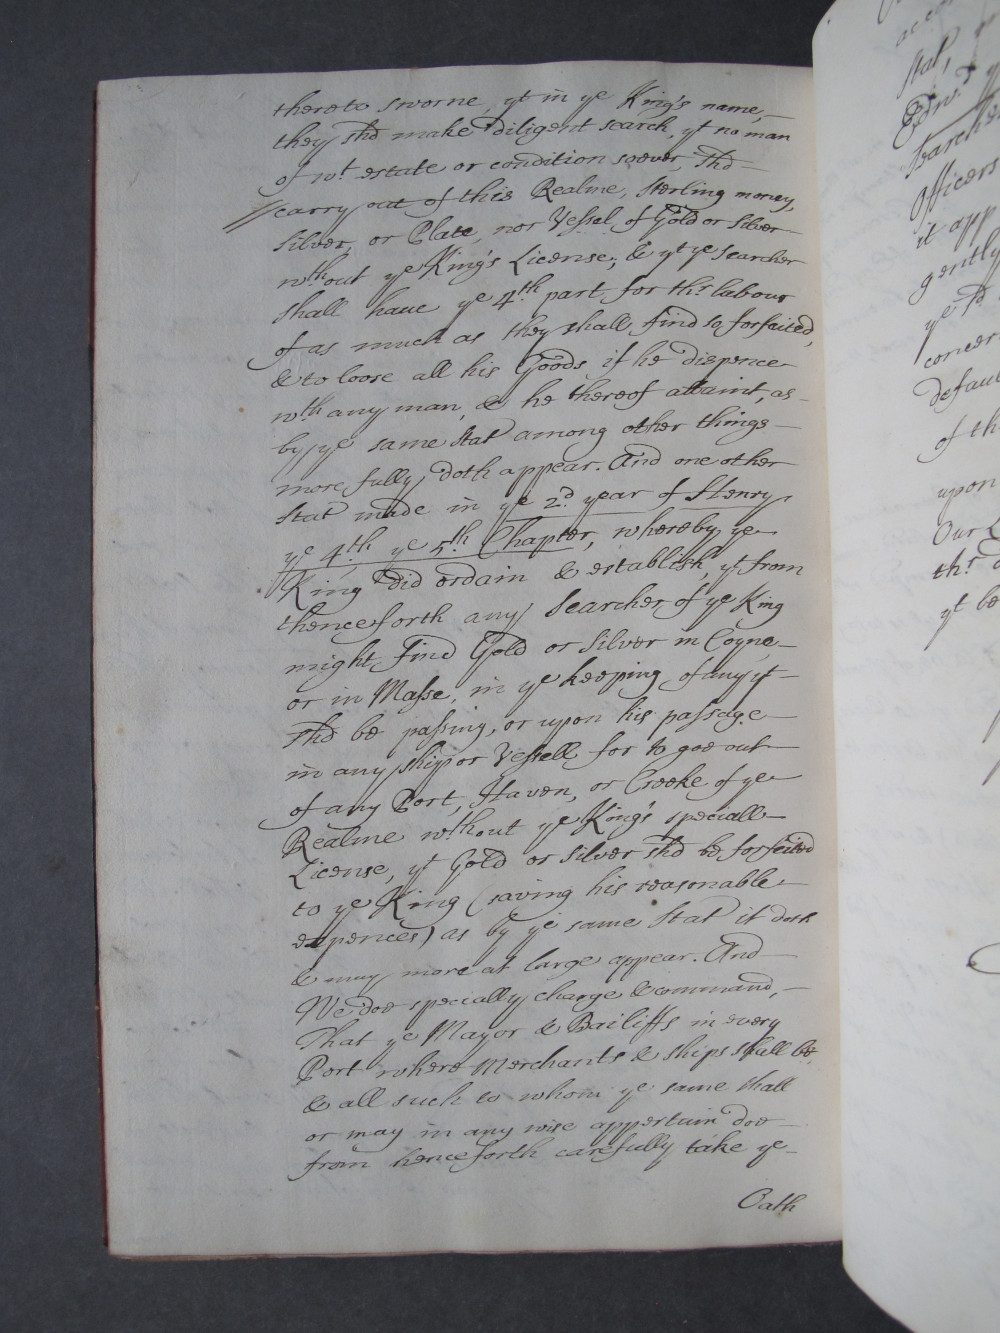 thereto sworne yt in ye King's name,
they shd make diligent search, yt no man
of wt estate or condition soever, shd
carry out of this Realme, Sterling money,
silver, or Plate, nor Vessel of Gold or Silver
wth out ye King's License; & yt ye Searcher
shall have ye 4th part for thr labour
of as much as they shall find so forfeited,
& to loose all his Goods if he dispence
wth any man, & he thereof attaint, as
by ye same Stat among other things
more fully doth appear. And one other
Stat made in ye 2d year of Henry
ye 4th ye 5th Chapter, whereby ye
King did ordain & establish, yt from
thenceforth any Searcher of ye King
might find Gold or Silver in Coyne
or in Masse, in ye keeping of any yt
shd be passing, or upon his passage
in any ship or Vessell for to goe out
of any Port, Haven, or Creeke of ye
Realme wthout ye King's speciall
License, yt Gold or Silver shd be forfeited
to ye King (saving his reasonable
expences) as by ye same Stat it doth
& may more at large appear. And
We doe specially charge & command,
That ye Mayor & Bailiffs in every
Port where Merchants & ships shall be
& all such to whom ye same shall
or may in any wise appertain doe
from henceforth carefully take ye
Oath
Stat,
Edwd
Searcher
Officers
it app
gently
ye sd
concer
defaul
of th
upon
Our
thr
yt be